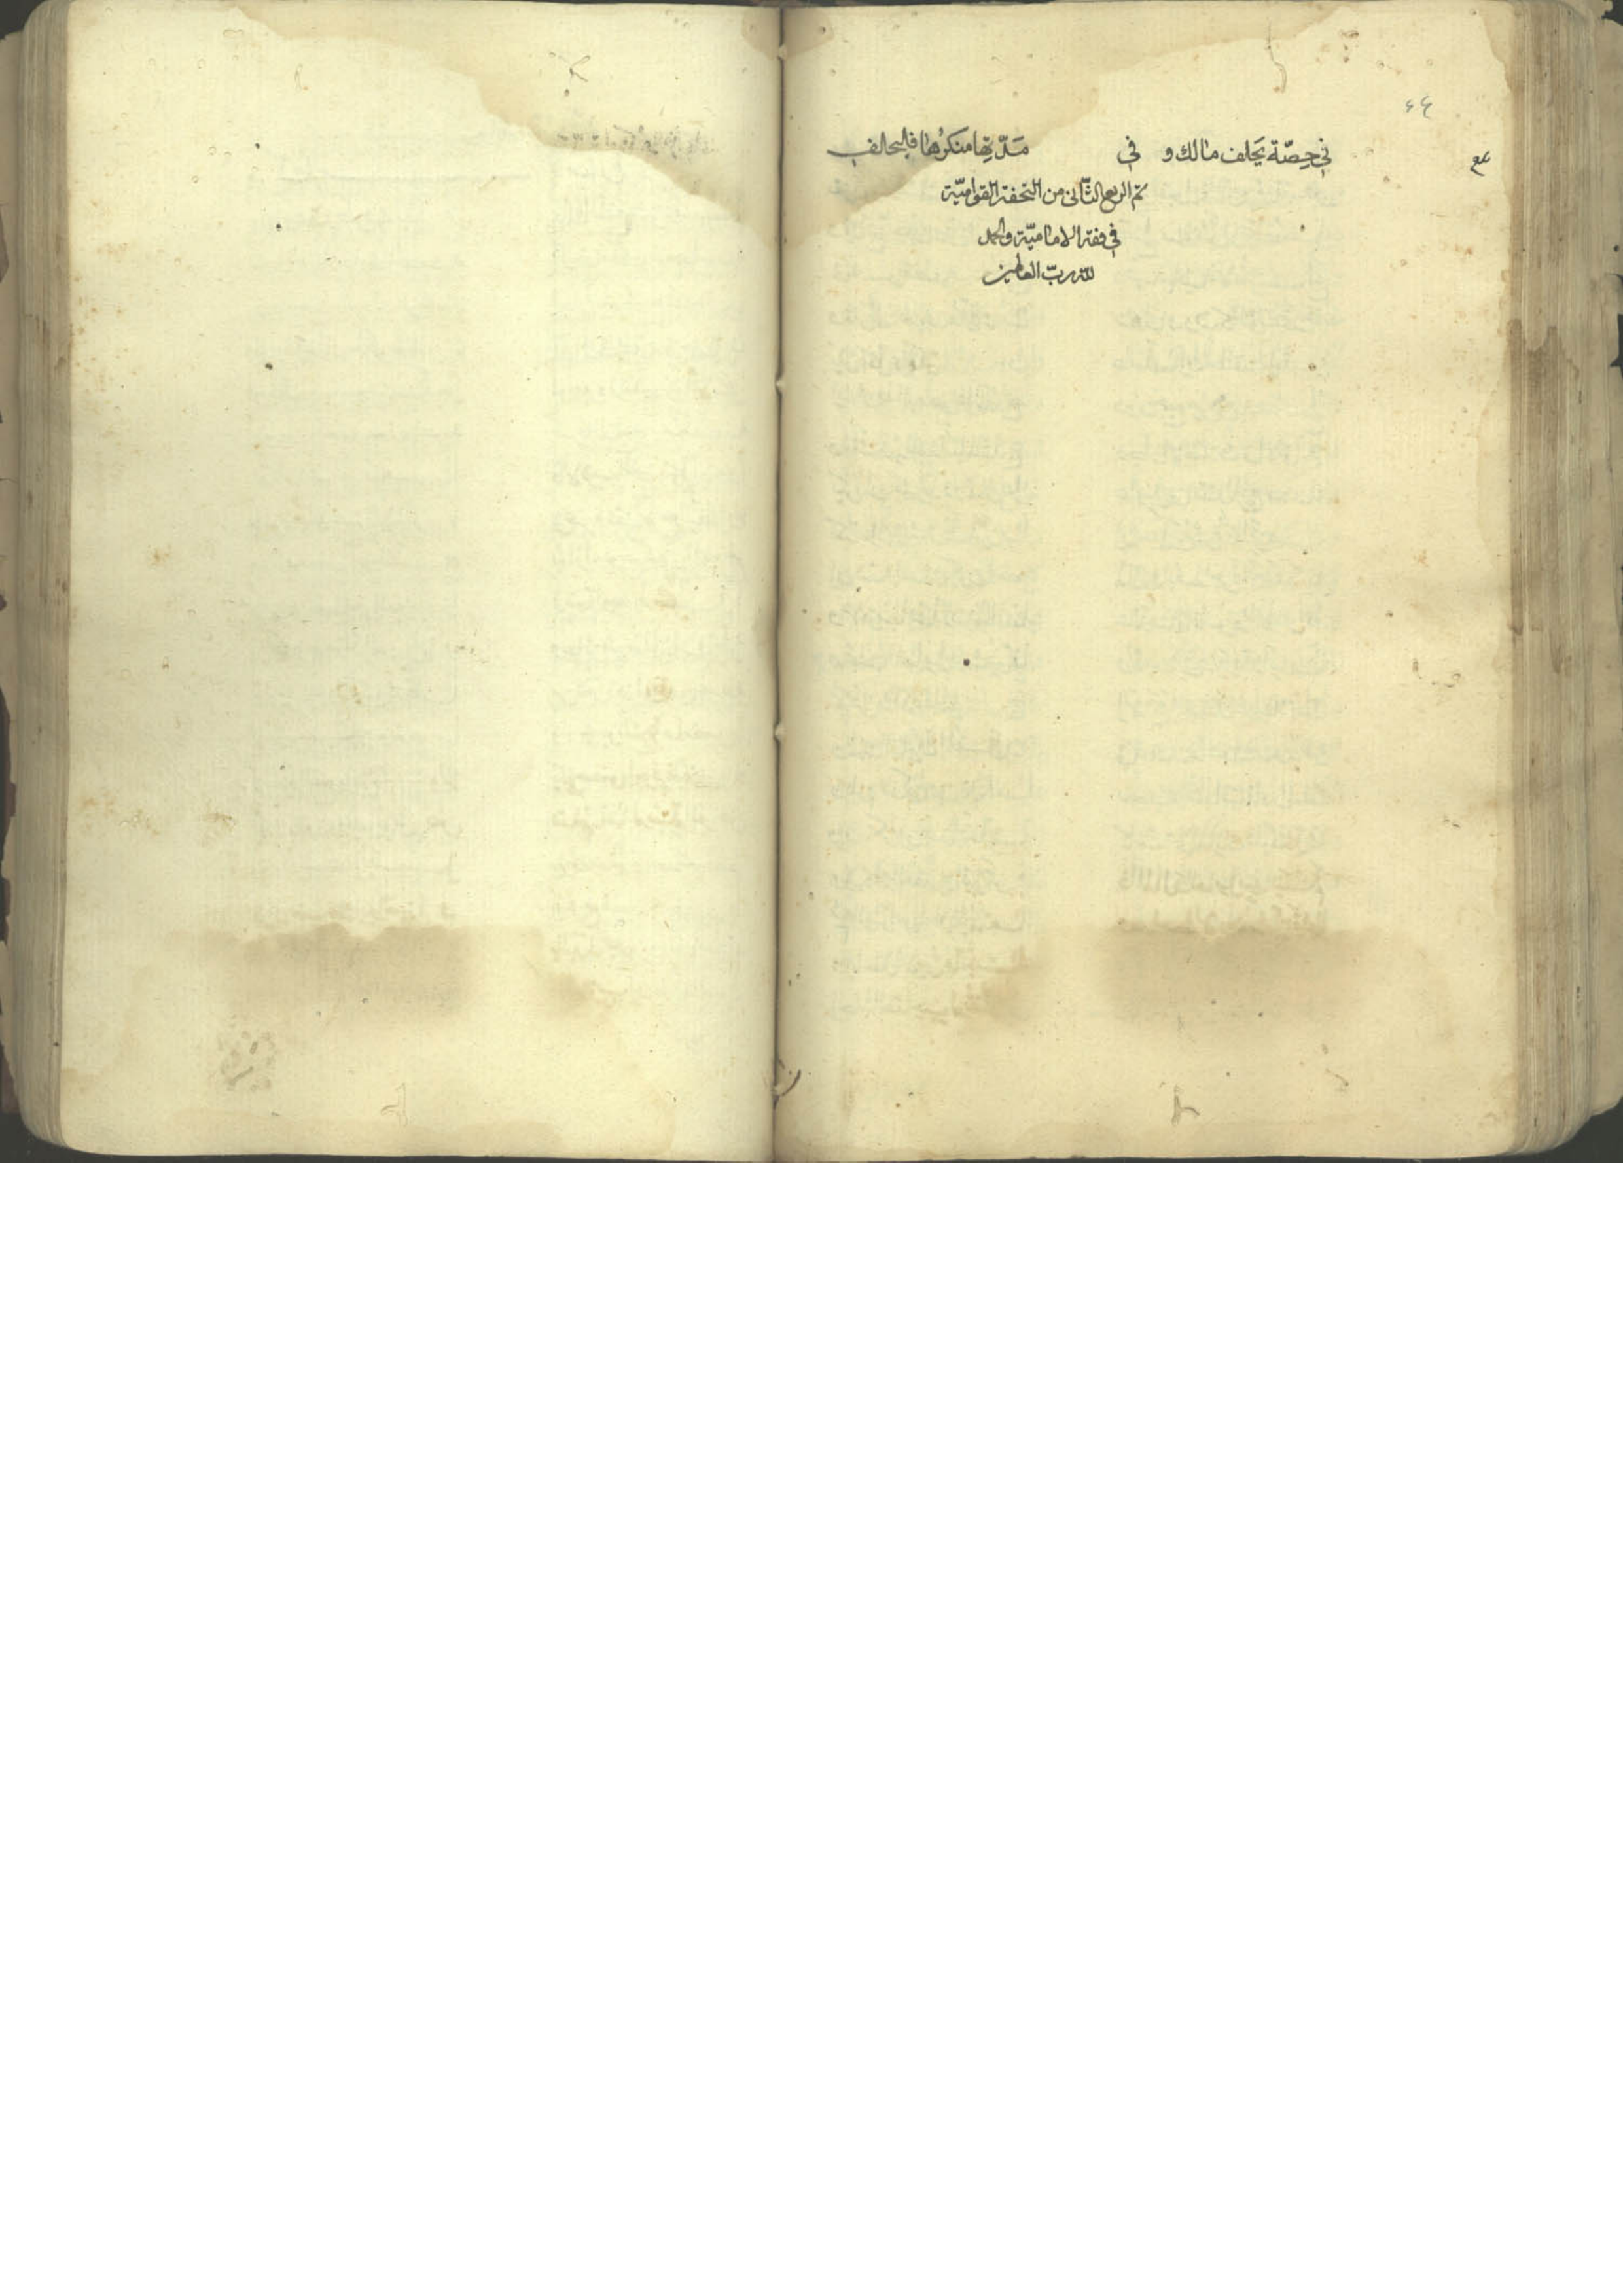 ٤٤
في حِصّة يَحلف مالك و في مَدّتِها منكرُها فليحالف
تم الربع الثّاني من التحفة القواميّة
في فقه الاماميّة والحمد
لله ربّ العالمين